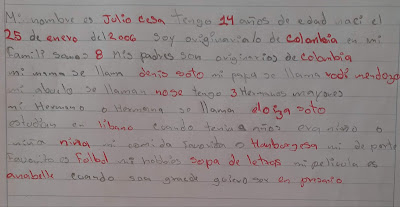 Mi nombre es Julio cesa tengo 14 años de edad naci el
25 de enero del 2006 soy originavialo de colombia en mi
famili somos 8 mis padres son originarios de colombia
mi mama se llam denis soto mi papa se llama rodi mendoza
mi abuelo se llaman nose tengo 3 Hermanos mayores
mi Hermano o Hermana se llama eloiga soto
estudian en libano cuando tenia años era niño o
niña niña mi comida favorita o Hamburgesa mi de porte
favorito o Futbol mi hobbis sopa de letras mi pelicula es
anabelle cuando son grande quiero ser en